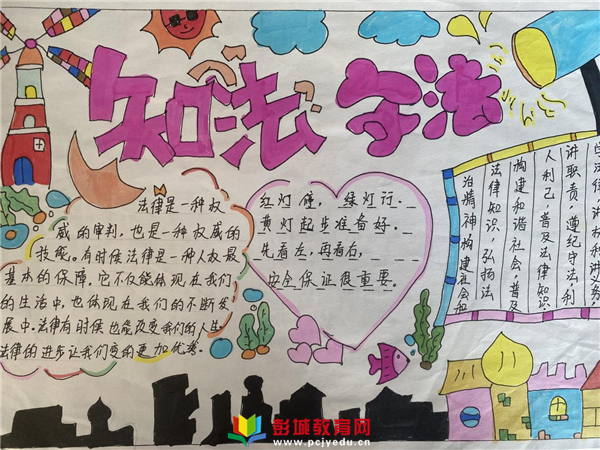 知法 守法
法律是一种权
威的审判，也是一种权威的
技能。有时候法律是一种人权最
基本的保障。它不仅能体现在我们
的生活中，也体现在我们的不断发
展中。法律有时候也能改变我们的人生
法律的进步让我们变的更加优秀。
红灯停，绿灯行。
黄灯起步准备好。
先看左，再看右，
安全保证很重要。
讲权利讲义务，
讲职责，遵纪守法，利
人利己，普及法律知识
构建和谐社会，普及
法律知识，弘扬法
治精神构建社会和
彭城教育网
www.pcjyedu.cn